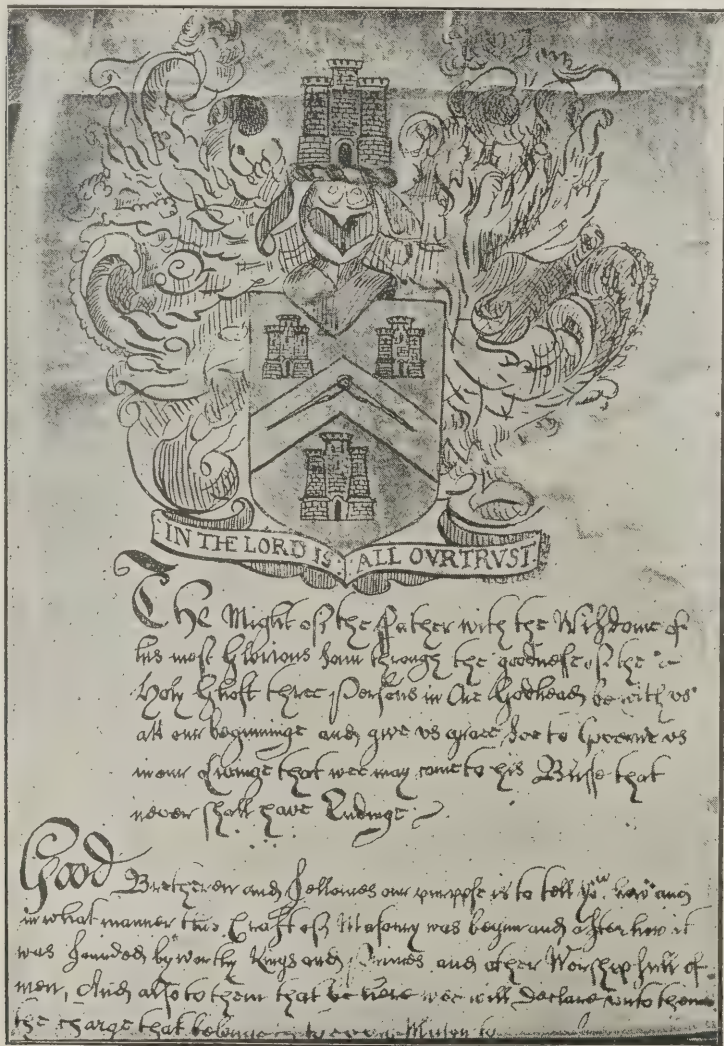 IN THE LORD IS ALL OVR TRVST
The Might of the Father with the Wisdome of
his most Glorious Sonn through the goodnesse of the
Holy Ghost three Persons in One Godhead be with vs
att our beginninge and give vs grace soe to Governe vs
in our Livinge that wee may come to his Blisse that
never shall have Endinge
Good Bretheren and Fellowes our purpose is to tell you how and
in what manner this Craft of Masonry was begun and after how it
was founded by worthy Kings and Princes and other Worshipfull
men, And also to them that be here wee will Declare vnto them
the charge that to every Mason to